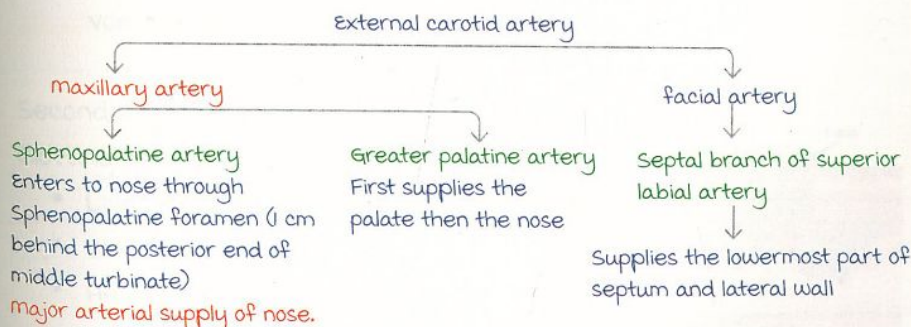 External carotid artery
maxillary artery
facial artery
Sphenopalatine artery
Enters to nose through
Sphenopalatine foramen (1 cm
behind the posterior end of
middle turbinate)
major arterial supply of nose.
Greater palatine artery
First supplies the
palate then the nose
Septal branch of superior
labial artery
Supplies the lowermost part of
septum and lateral wall